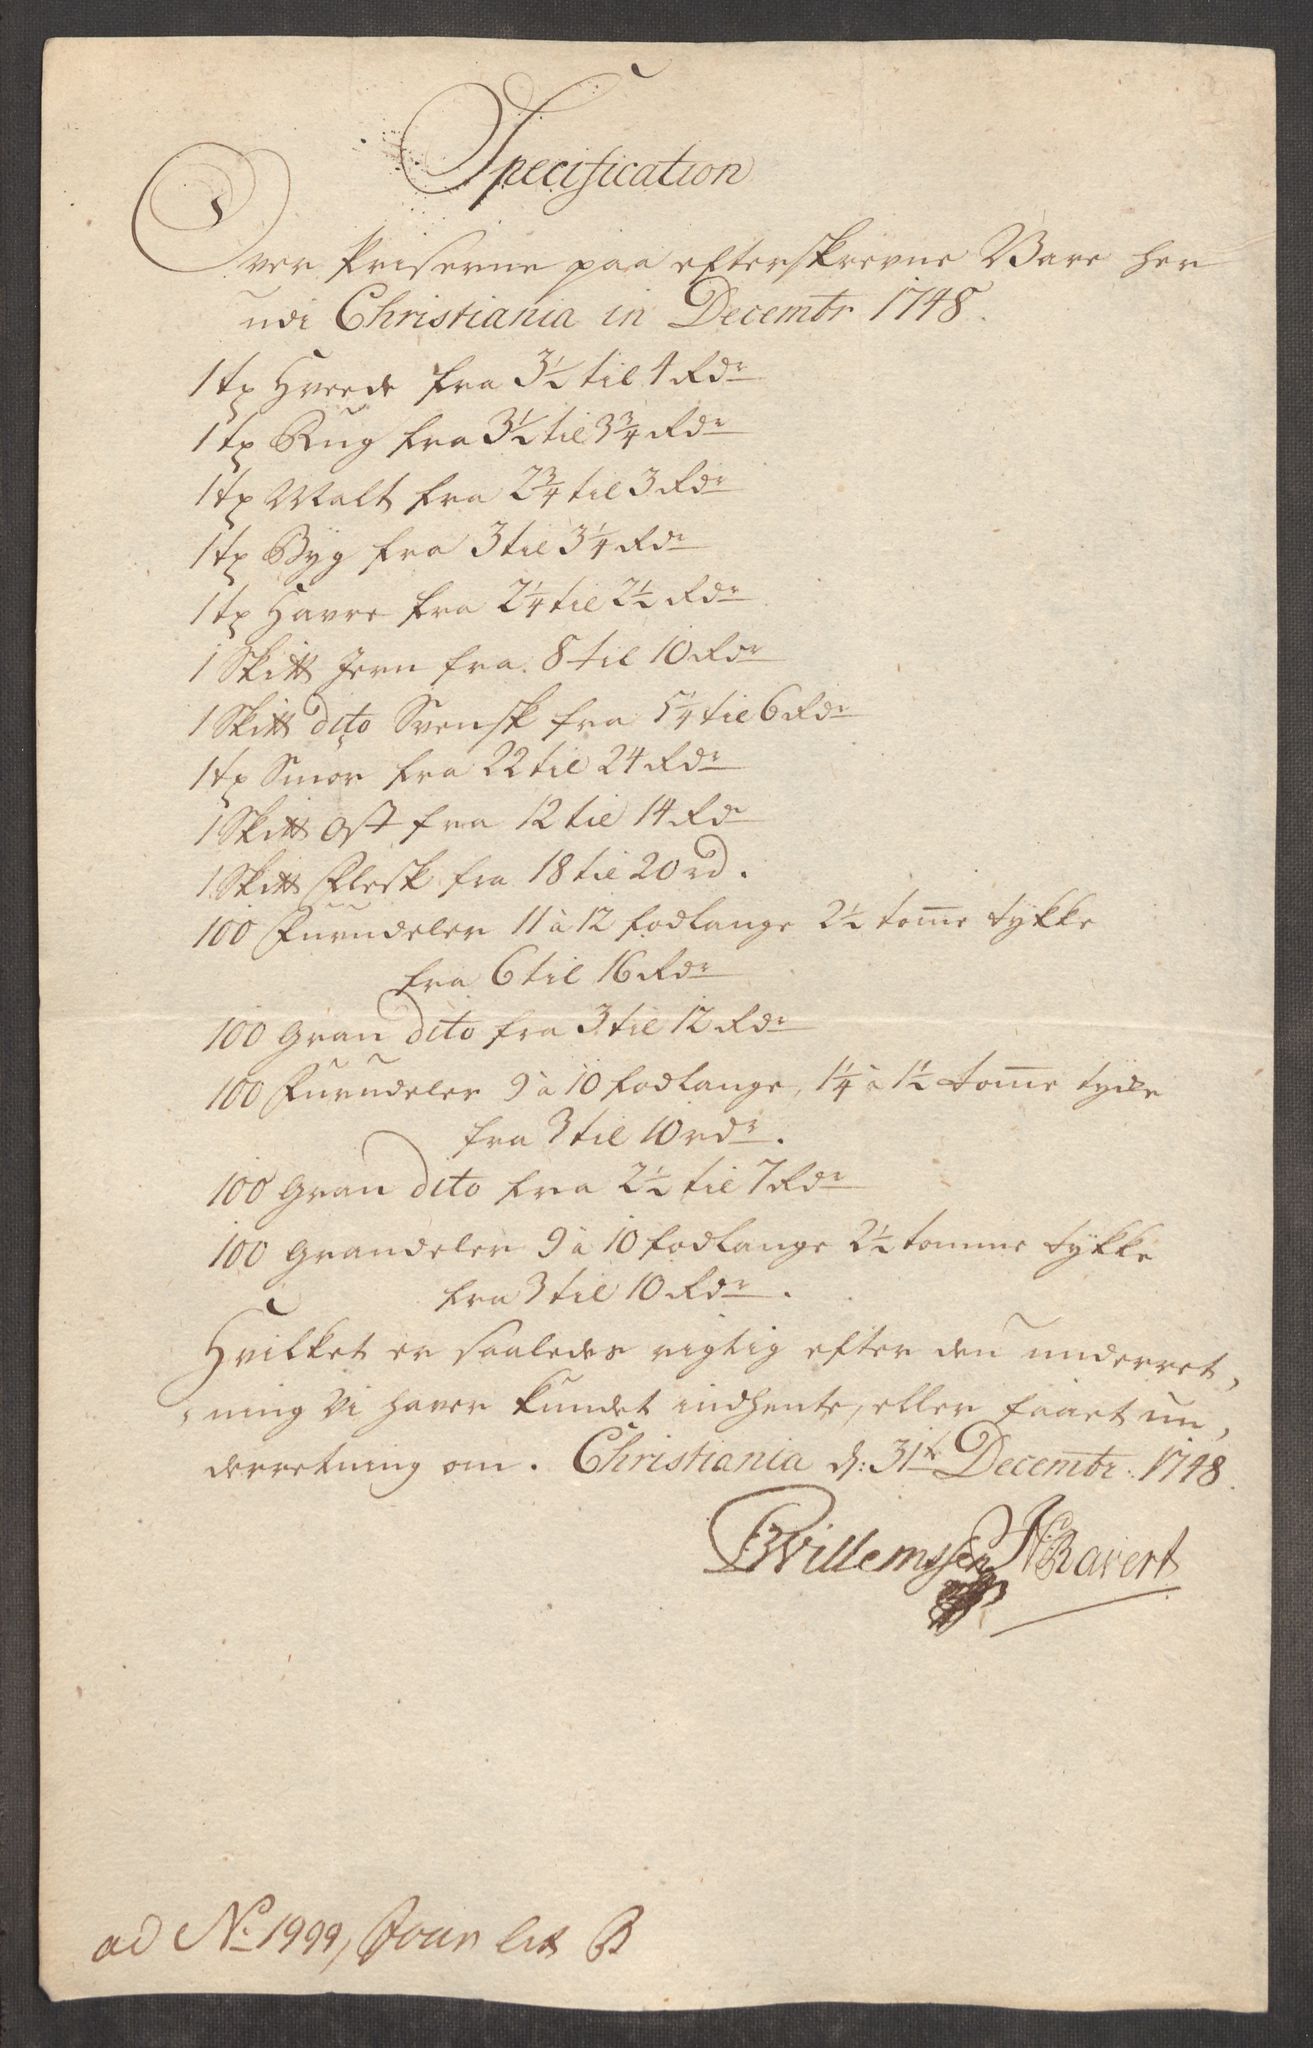 Specification
Over Priserne paa efterskrevne Vare her
udi Christiania in Decembr 1748.
1 tp Hvede fra 3½ til 4 Rdr
1 tp Rug fra 3½ til 3¾ Rdr
1 tp Malt fra 2¾ til 3 Rdr
1 tp Byg fra 3 til 3¼ Rdr
1 tp Havre fra 2¼ til 2½ Rdr
1 Skitt Jern fra 8 til 10 Rdr
1 Skitt dito Svensk fra 5¼ til 6 Rdr
1 tp Smør fra 22 til 24 Rdr
1 Skitt Ost fra 12 til 14 Rdr
1 Skitt Flesk fra 18 til 20 rd.
100 Furudeler 11 à 12 fodlange 2½ tom̄e tykke
fra 6 til 16 Rdr
100 Gran dito fra 3 til 12 Rdr
100 Furudeler 9 à 10 fodlange, 1¼ à 1½ tom̄e tycke
fra 3 til 10 rdr.
100 Gran dito fra 2½ til 7 Rdr
100 Grandeler 9 à 10 fodlange 2½ tomme tykke
fra 3 til 10 Rdr.
Hvilket er saaledes rigtig efter den underret,
,ning vi haver kundet indhente, eller faaet un,
derretning om. Christiania d: 31te Decembr. 1748.
Willemssen N: Ravert
ad No 1999, Jour lit B